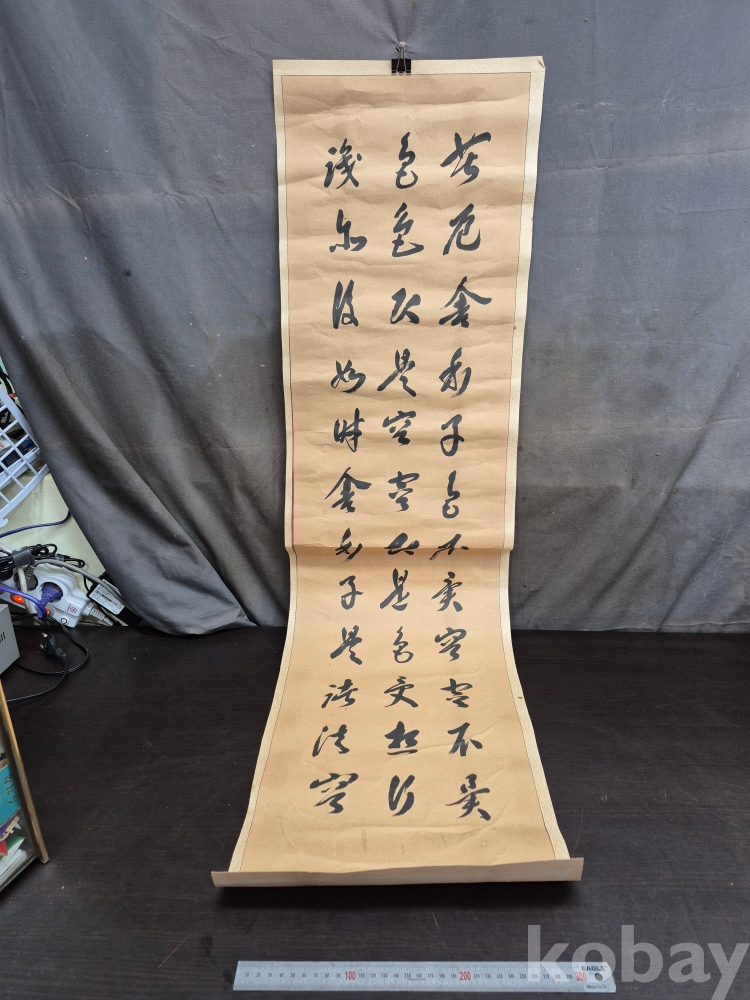 苦厄舍利子色不異空空不異
色色即是空空即是色受想行
識亦復如時舍利子是諸法空
100 200 300 EAGLE
kobay